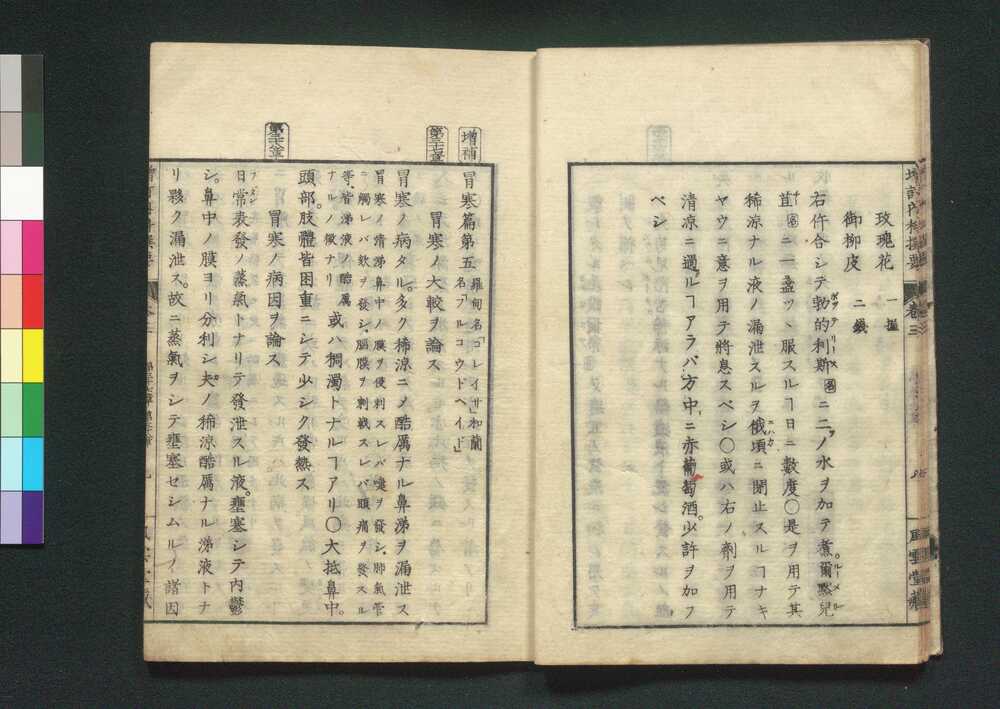 增訂內科撰要
卷三
風雲堂藏
玫瑰花 一握
御柳皮 二錢
右件合シテ勃的利斯ニ二ノ水ヲ加テ煮爾黙兒
ボツテリース
ルーメル
ニ一盞ツヽ服スルヿ日ニ數度〇是ヲ用テ其
稀涼ナル液ノ漏泄スルヲ俄頃ニ閉止スルヿナキ
ニハカ
ヤウニ意ヲ用テ將息スベシ〇或ハ右ノ劑ヲ用テ
清凉ニ過ルヿアラバ方中ニ赤葡萄酒少許ヲ加フ
ベシ
增補
冒寒篇第五 羅甸名「コレイザ」和蘭
名「ファルコウドヘイド」
第三十七章
冒寒ノ大較ヲ論ス
冒寒ノ病タル。多ク稀涼ニ〆酷厲ナル鼻涕ヲ漏泄ス
冒寒ノ清涕鼻中ノ膜ヲ侵刺スレバ嚔ヲ發シ、肺氣管
ニ觸レバ欬ヲ發シ、腦膜ヲ刺戟スレバ頭痛ヲ發スル
等、皆涕液ノ酷厲
ナルノ徵ナリ
或ハ稠濁トナルヿアリ〇大抵鼻中。
頭部。肢體皆困重ニシテ少シク發熱ス
第三十八章
冒寒ノ病因ヲ論ス
日常表發ノ蒸氣トナリテ發泄スル液。壅塞シテ内鬱
シ。鼻中ノ膜ヨリ分利シ。夫ノ稀涼酷厲ナル涕液トナ
リ夥ク漏泄ス。故ニ蒸氣ヲシテ壅塞セシムルノ諸因